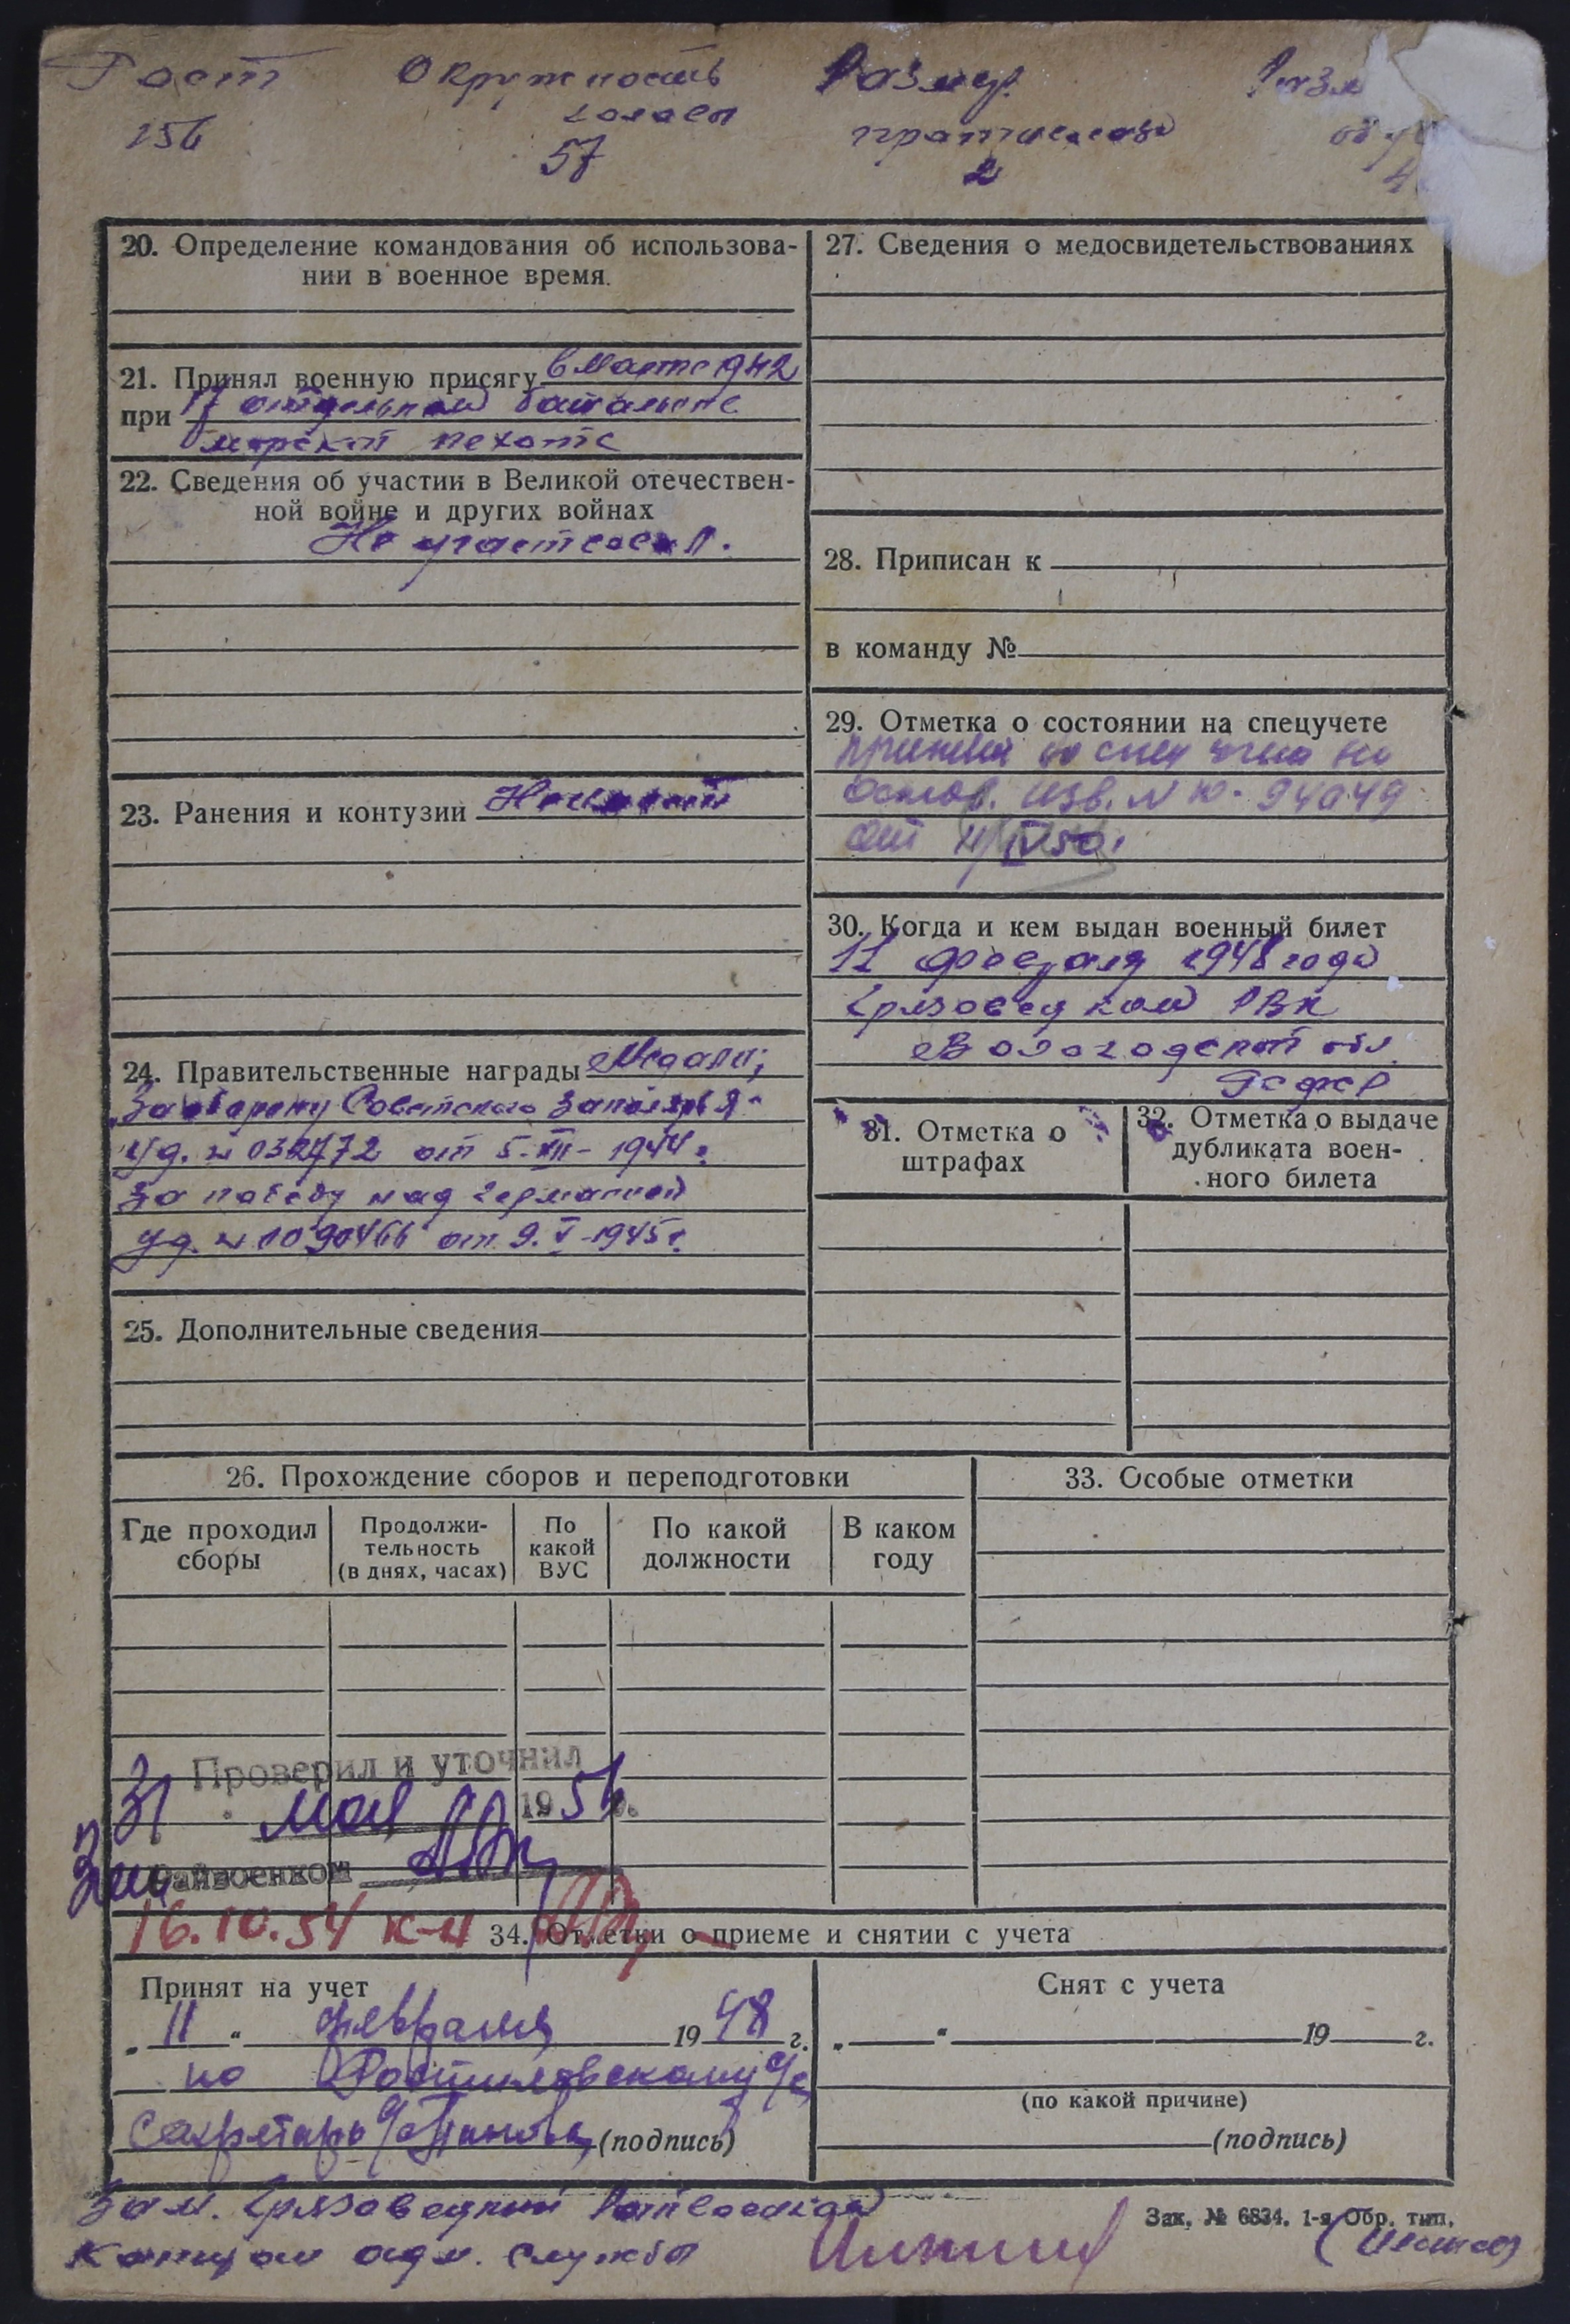 Рост Окружность Размер
головы противогаза
156 57 2
20. Определение командования об использова-
нии в военное время.
21. Принял военную присягу в Марте 1942
при 17 отдельном батальоне
морской пехоте
22. Сведения об участии в Великой отечествен-
ной войне и других войнах
Не участвовал.
23. Ранения и контузии Не имеет
24. Правительственные награды Медали;
„За оборону Советского Заполярья"
Уд. №032772 от 5-XII-1944г.
За победу над Германией
Уд. №1090466 от 9.V-1945г.
25. Дополнительные сведения
27. Сведения о медосвидетельствованиях
28. Приписан к
в команду №
29. Отметка о состоянии на спецучете
принят на спец учет на
основ. изв. №10-94049
от IV 50г.
30. Когда и кем выдан военный билет
11 февраля 1948 года
Грязовецким РВК
Вологодской обл.
РСФСР
31. Отметка о
штрафах
32. Отметка о выдаче
дубликата воен-
ного билета
26. Прохождение сборов и переподготовки
Где проходил
сборы
Продолжи-
тельность
(в днях, часах)
По
какой
ВУС
По какой
должности
В каком
году
33. Особые отметки
Проверил и уточнил
31 мая 1956.
Райвоенком
16.10.54 к-н
34. Отметки о приеме и снятии с учета
Принят на учет
„11" февраля 1948 г.
по Ростиловскому с/с
Секретарь с/с (подпись)
Снят с учета
„ " 19 г.
(по какой причине)
(подпись)
Зам. Грязовецкий Райвоенком
Капитан адм. службы
Зак. № 6834. 1-я Обр. тип.